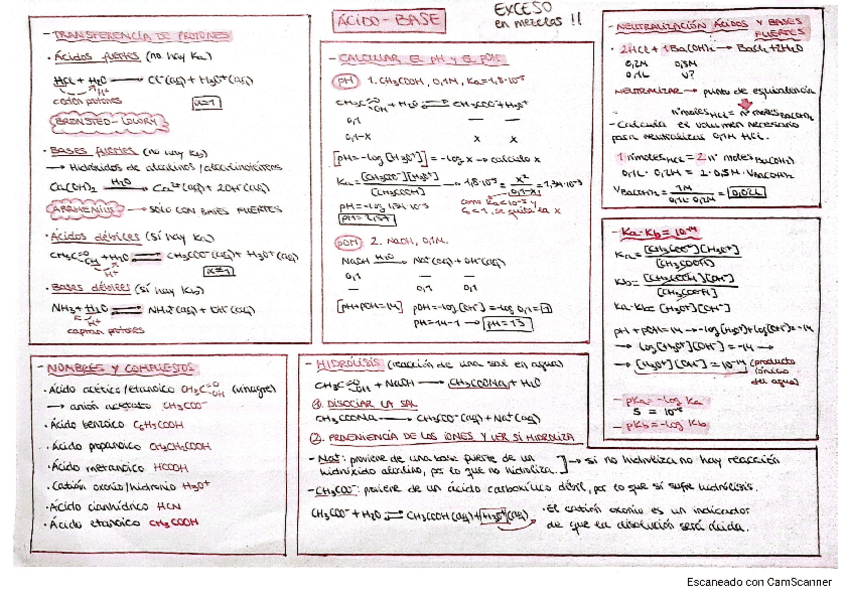 ÁCIDO-BASE
EXCESO
en mezclas !!
- TRANSFERENCIA DE PROTONES
· Ácidos fuertes (no hay Ka)
HCl + H₂O → Cl⁻(aq) + H₃O⁺(aq)
H⁺
ceden protones
α=1
BRÖNSTED-LOWRY
· Bases fuertes (no hay Kb)
→ Hidróxidos de alcalinos / alcalinotérreos
Ca(OH)₂ H₂O→ Ca²⁺(aq) + 2OH⁻(aq)
ARRHENIUS → SÓLO CON BASES FUERTES
· Ácidos débiles (sí hay Ka)
H⁺
· Bases débiles (sí hay Kb)
NH₃ + H₂O ⇌ NH₄⁺(aq) + OH⁻(aq)
H⁺
captan protones
- CALCULAR EL pH Y EL pOH
pH 1. CH₃COOH, 0,1M, Ka=1,8·10⁻⁵
0,1 — —
0,1-x x x
[pH=-log[H₃O⁺]] = -log x → calculo x
Ka = [CH₃COO⁻][H₃O⁺] / [CH₃COOH] → 1,8·10⁻⁵ = x² / 0,1-x = 1,34·10⁻³
pH=-log 1,34·10⁻³
pOH 2. NaOH, 0,1M.
NaOH H₂O→ Na⁺(aq) + OH⁻(aq)
0,1 — —
— 0,1 0,1
[pH+pOH=14] pOH=-log[OH⁻]=-log 0,1=1
pH=14-1 → pH=13
- NEUTRALIZACIÓN ÁCIDOS Y BASES
FUERTES
· 2HCl + 1Ba(OH)₂ → BaCl₂ + 2H₂O
0,2M 0,5M
0,1L V?
NEUTRALIZAR → punto de equivalencia
nºmoles HCl = nº moles Ba(OH)₂
- Calcula el volumen necesario
para neutralizar 0,1L HCl.
1 nºmoles HCl = 2 nº moles Ba(OH)₂
0,1L · 0,2M = 2 · 0,5M · VBa(OH)₂
- Ka·Kb = 10⁻¹⁴
Ka = [CH₃COO⁻][H₃O⁺] / [CH₃COOH]
Ka·Kb = [H₃O⁺][OH⁻]
→ [H₃O⁺][OH⁻] = 10⁻¹⁴ (producto
iónico
del agua)
- pKa=-log Ka
- pKb=-log Kb
- NOMBRES Y COMPUESTOS
· Ácido acético/etanoico (vinagre)
→ anión acetato CH₃COO⁻
· Ácido benzoico C₆H₅COOH
· Ácido propanoico CH₃CH₂COOH
· Ácido metanoico HCOOH
· Catión oxonio/hidronio H₃O⁺
· Ácido cianhídrico HCN
· Ácido etanoico CH₃COOH
- HIDRÓLISIS (reacción de una sal en agua)
① DISOCIAR LA SAL
CH₃COONa → CH₃COO⁻(aq) + Na⁺(aq)
② PROVENIENCIA DE LOS IONES Y VER SI HIDROLIZA
- Na⁺: proviene de una base fuerte de un
hidróxido alcalino, por lo que no hidroliza. → si no hidroliza no hay reacción
- CH₃COO⁻: proviene de un ácido carboxílico débil, por lo que sí sufre hidrólisis.
CH₃COO⁻ + H₂O ⇌ CH₃COOH(aq) + H₃O⁺(aq) · El catión oxonio es un indicador
de que la disolución será ácida.
Escaneado con CamScanner